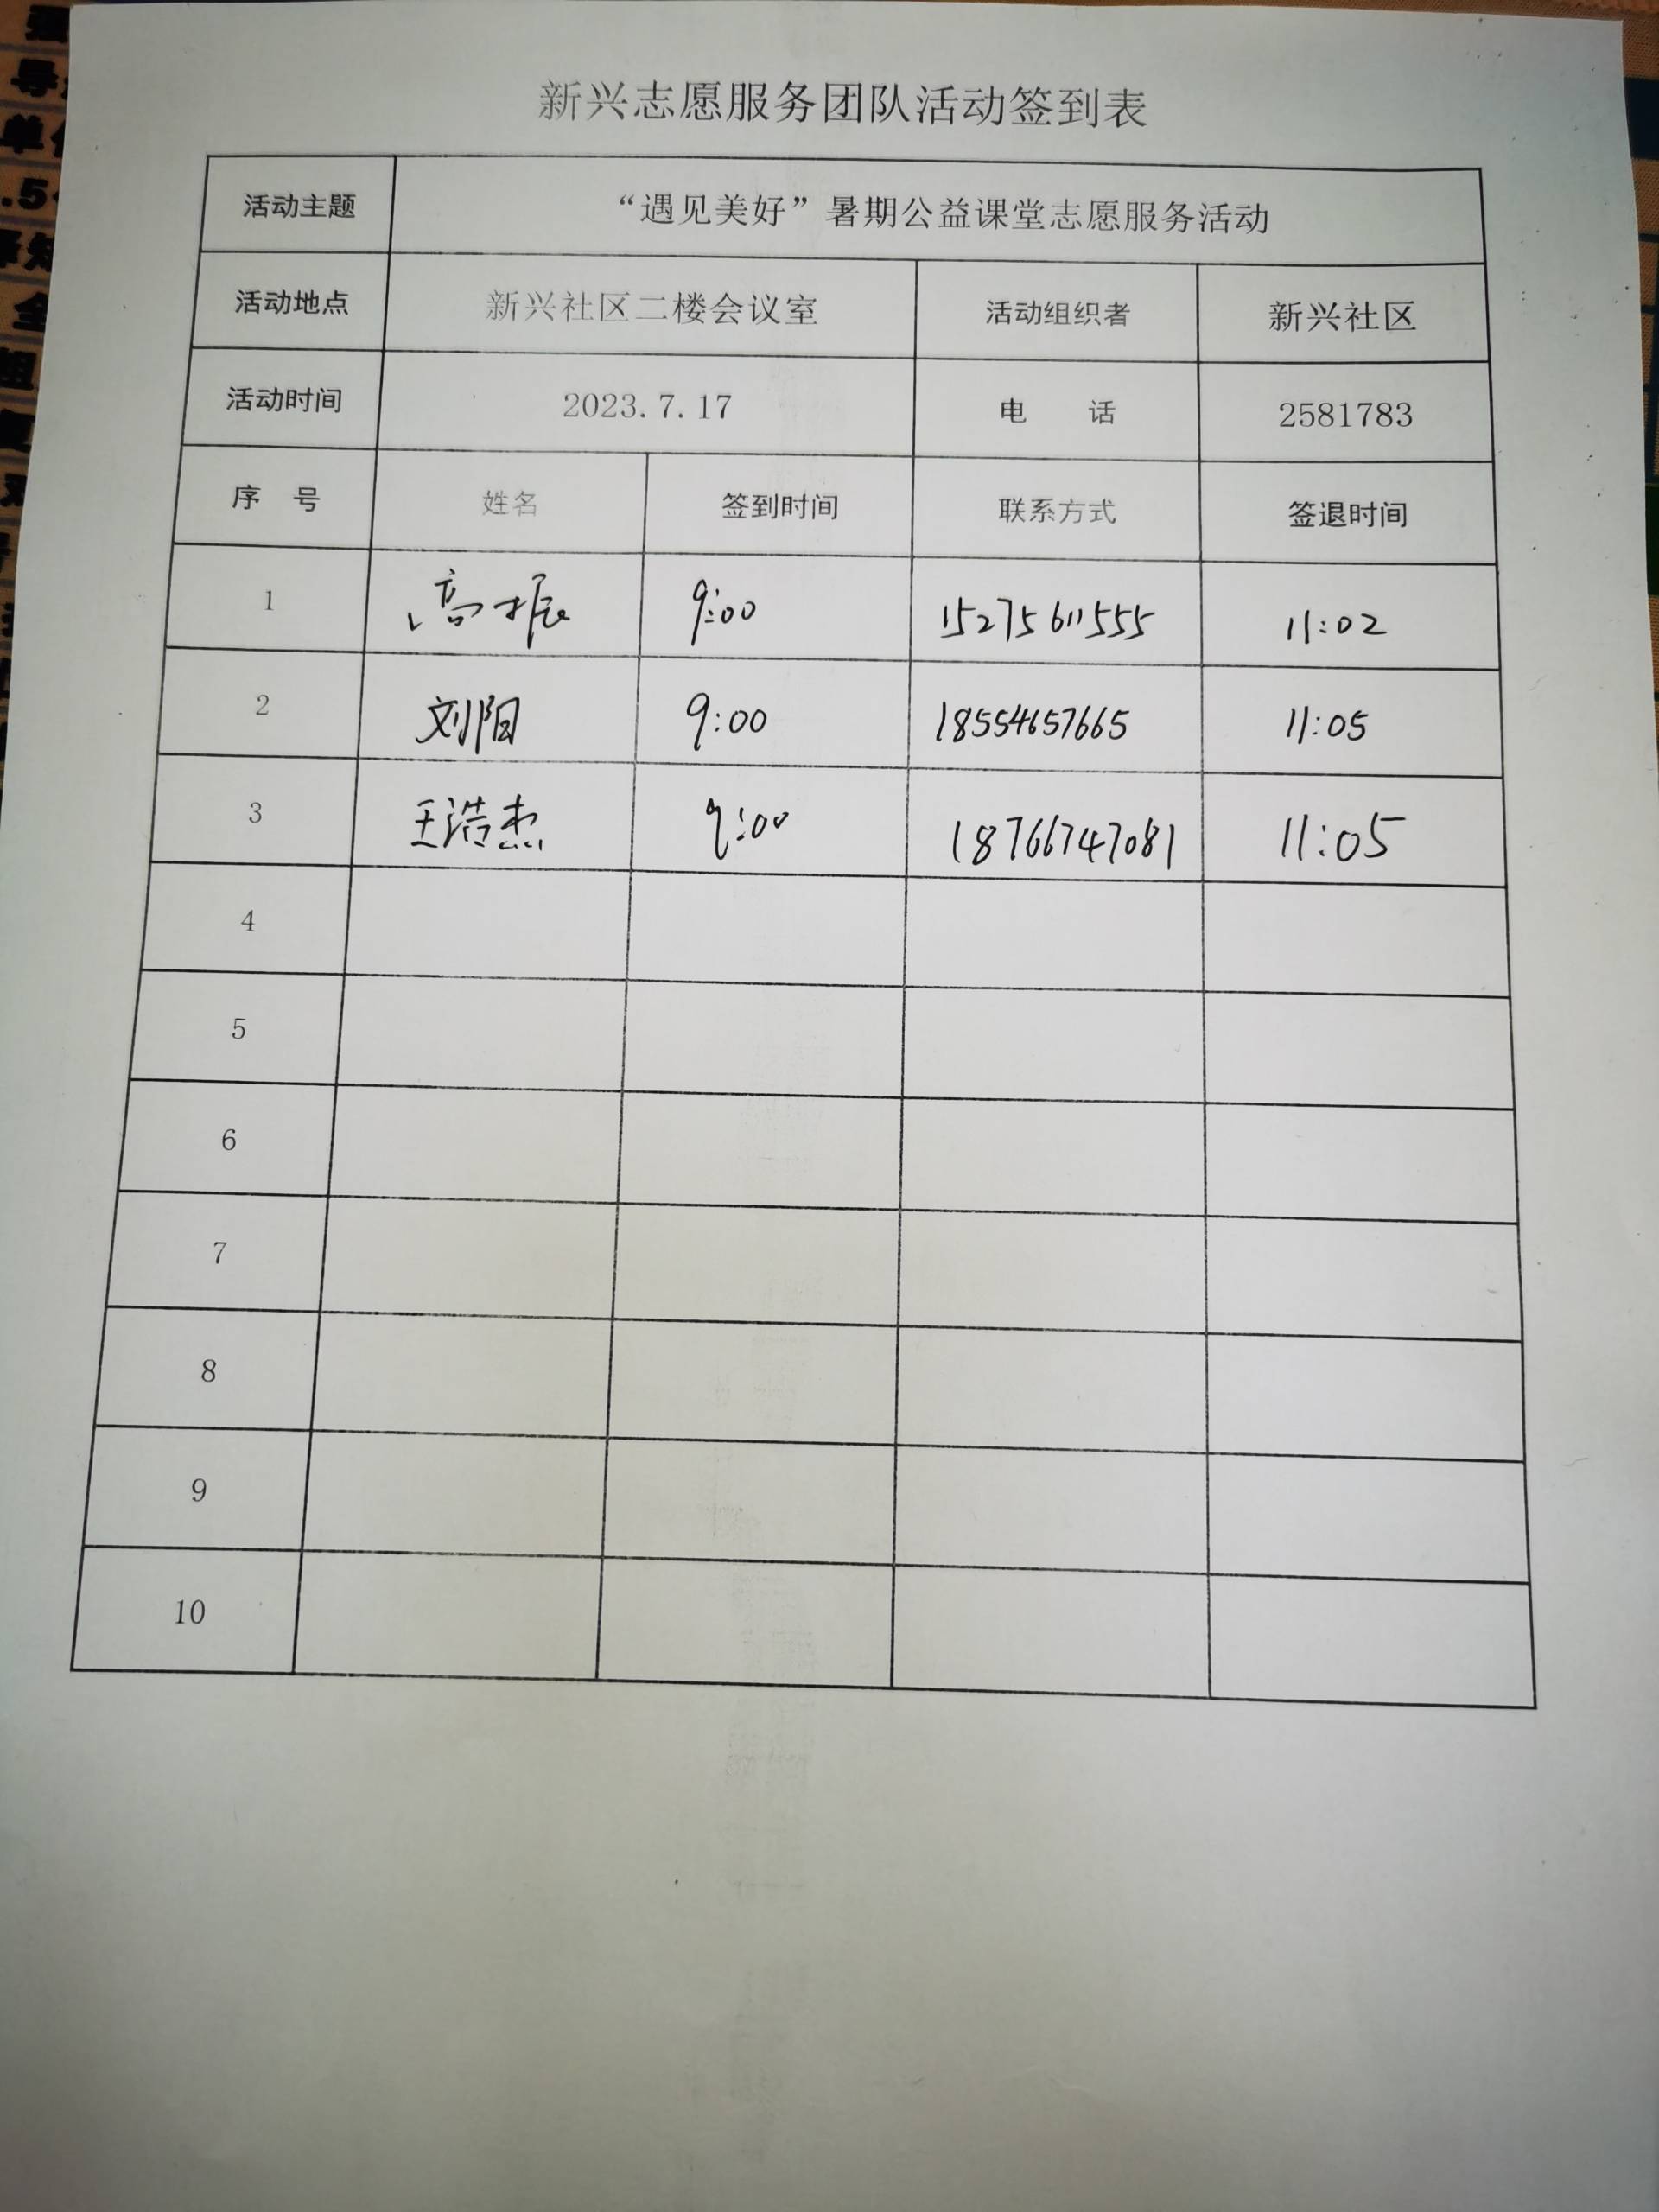 新兴志愿服务团队活动签到表
活动主题 “遇见美好”暑期公益课堂志愿服务活动
活动地点 新兴社区二楼会议室 活动组织者 新兴社区
活动时间 2023.7.17 电 话 2581783
序 号 姓名 签到时间 联系方式 签退时间
1 高振 9:00 15275611555 11:02
2 刘阳 9:00 18554657665 11:05
3 王浩杰 9:00 18766747081 11:05
4
5
6
7
8
9
10